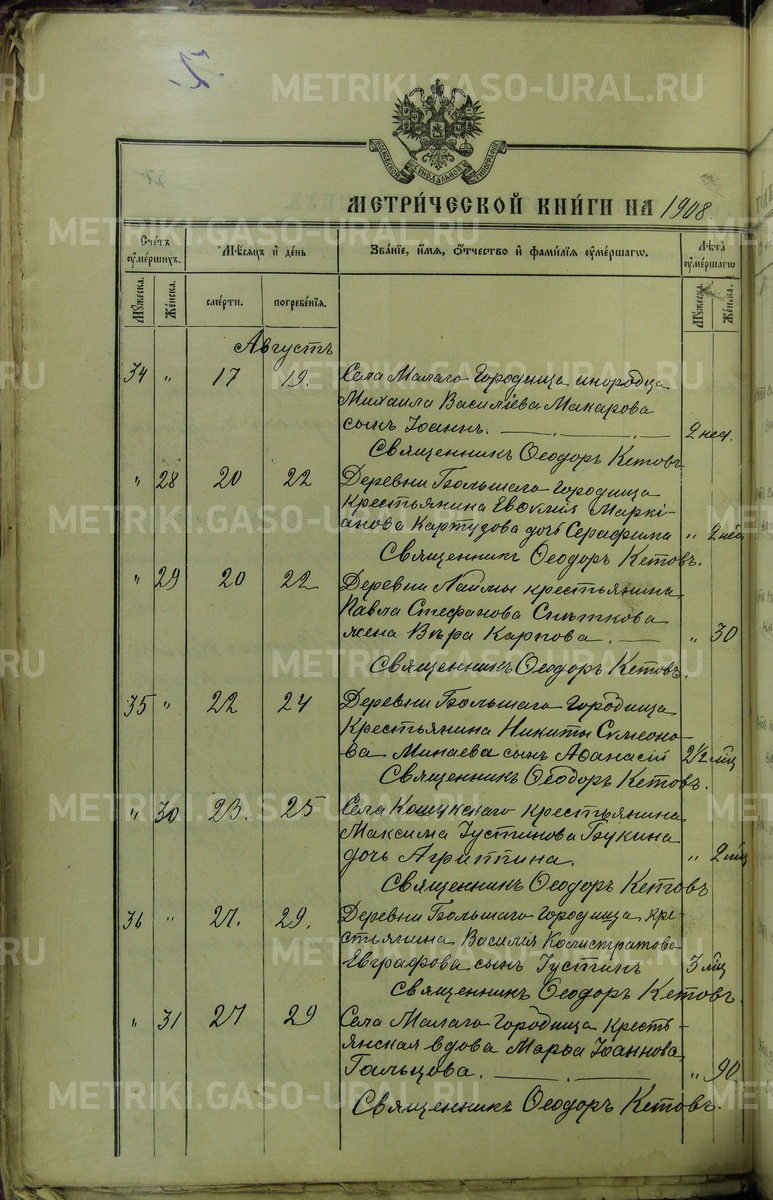 METRIKI.GASO-URAL.RU
МОСКОВСКОЙ СѴНОДАЛЬНОЙ ТИПОГРАФІИ
МЕТРИ́ЧЕСКОЙ КНИ́ГИ НА 1908.
Сче́тъ ᲂу҆ме́ршихъ. Мѣ́сяцъ и҆ де́нь Зва́нїе, и҆́мя, ѻ҆́тчество и҆ фами́лїя ᲂу҆ме́ршагѡ. Лѣ́та ᲂу҆ме́ршагѡ
Мꙋ́жеска. Же́нска. сме́рти. погребе́нїя. Мꙋ́жеска. Же́нска.
Августъ
34 " 17 19. Села Малаго Городища инородца
Михаила Василіева Макарова
сынъ Іоаннъ. 2 нед.
Священникъ Ѳеодоръ Кетовъ
" 28 20 22 Деревни Большаго Городища
крестьянина Евѳимія Маркі-
анова Картузова дочь Серафима " 2 нед
Священникъ Ѳеодоръ Кетовъ.
" 29 20 22 Деревни Лаймы крестьянина
Павла Стефанова
жена Вѣра Карпова. " 30
Священникъ Ѳеодоръ Кетовъ.
35 " 22 24 Деревни Большаго Городища
Крестьянина Никиты Сѵмеоно-
ва Минаева сынъ Аѳанасій 2½ мѣс
Священникъ Ѳеодоръ Кетовъ.
" 30 23. 25 Села Кошукскаго крестьянина
Максима Іустинова Букина
дочь Агриппина. " 2 мѣс
Священникъ Ѳеодоръ Кетовъ
36 " 27. 29. Деревни Большаго Городища кре-
стьянина Василія Калистратова
Евграфова сынъ Іустинъ 3 мѣс
Священникъ Ѳеодоръ Кетовъ.
" 31 27 29 Села Малаго Городища кресть-
янская вдова Марѳа Іоаннова
Гальцова. " 90
Священникъ Ѳеодоръ Кетовъ.